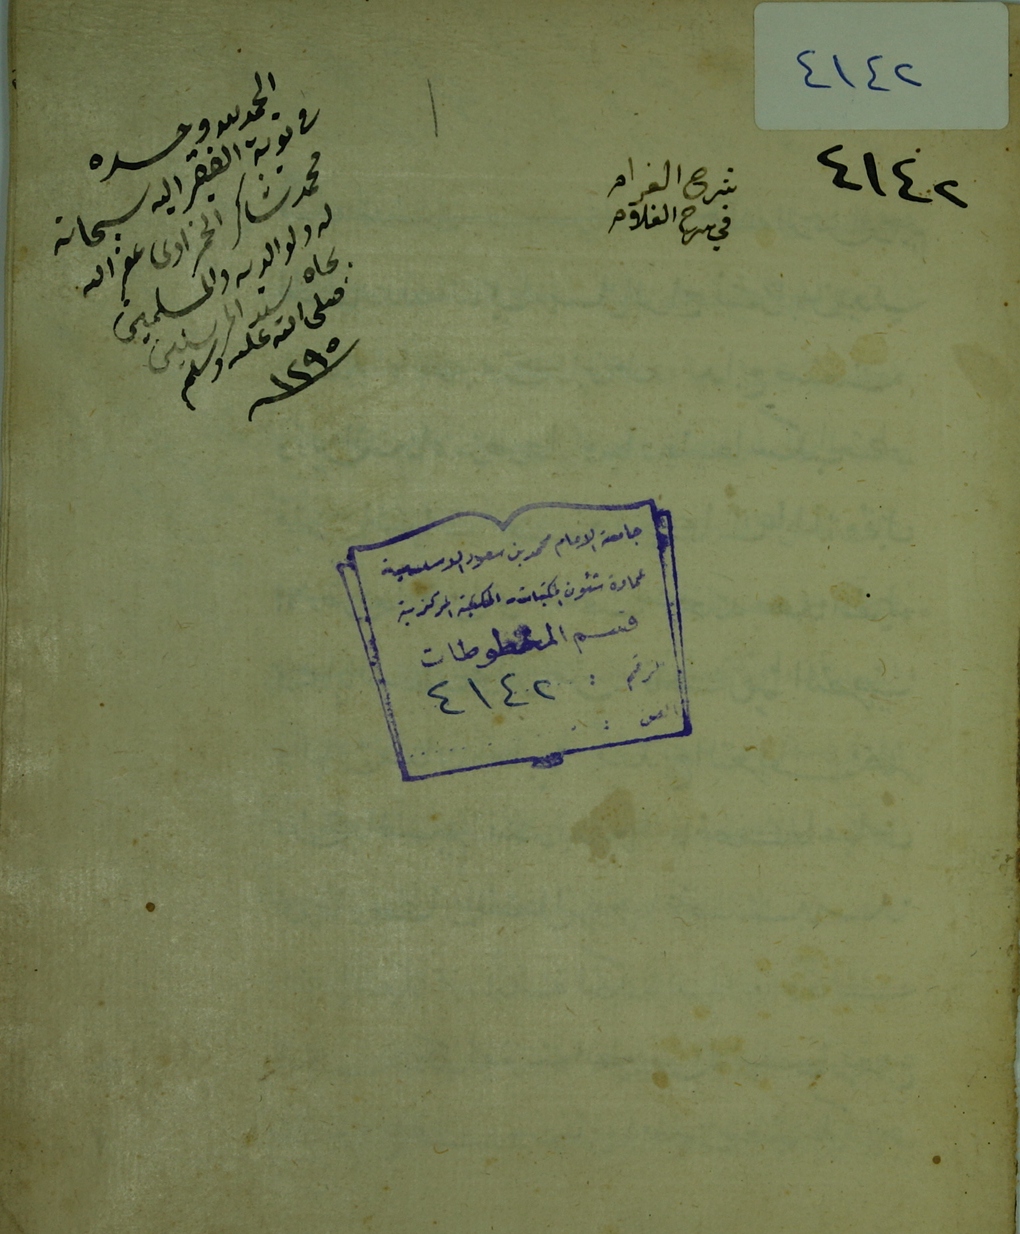 ٤١٤٢
٤١٤٢
شرح الغرام
في سرح الغلام
الحمد لله وحده
في نوبة الفقير اليه سبحانه
محمد شاكر الحمزاوي غفر الله
له ولوالديه والمسلمين
بجاه سيد المرسلين
صلى الله عليه وسلم
١٢٩٥
جامعة الامام محمد بن سعود الاسلامية
عمادة شئون المكتبات - المكتبة المركزية
قسم المخطوطات
الرقم : ٤١٤٢